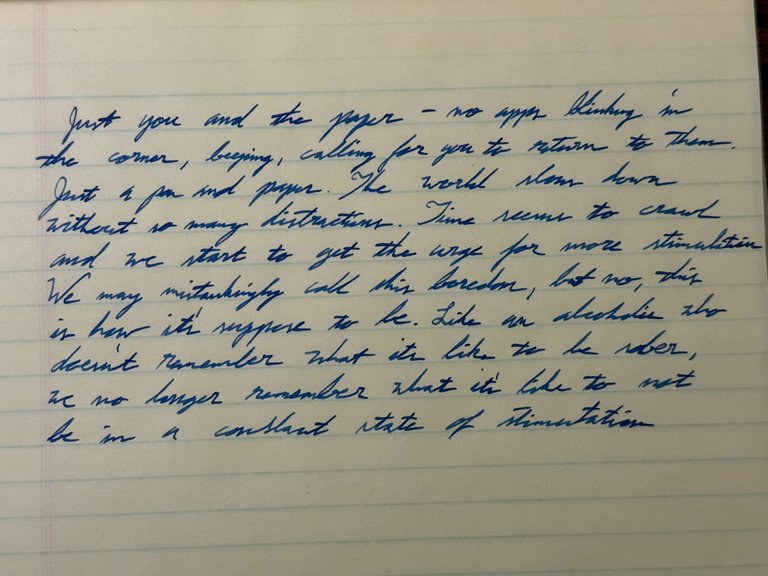 Just you and the paper - no apps blinking in
the corner, beeping, calling for you to return to them.
Just a pen and paper. The world slows down
without so many distractions. Time seems to crawl
and we start to get the urge for more stimulation
We may mistankingly call this boredon, but no, this
is how it's suppose to be. Like an alcoholic who
doesn't remember what its like to be sober,
we no longer remember what it's like to not
be in a constant state of stimulation